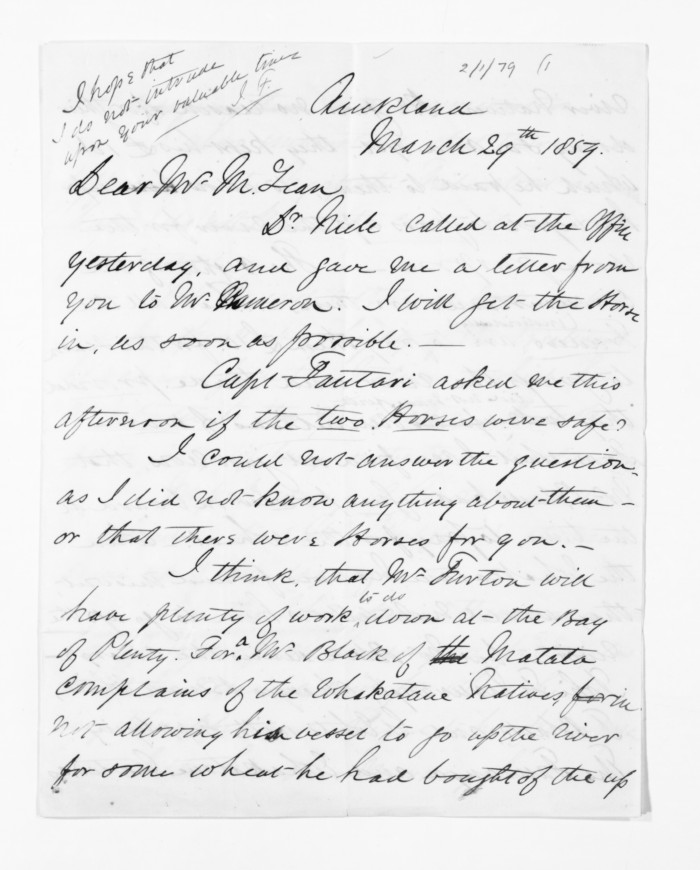 I hope that
I do not intrude
upon your valuable time
J. G.
2/1/79 (1
Auckland
March 29th 1859.
Dear Mr McLean
Dr Nield called at the Office
yesterday, and gave me a letter from
you to Mr Cameron. I will get the Horse
in, as soon as possible. —
Capt Fautari asked me this
afternoon if the two Horses were safe?
I could not answer the question,
as I did not know anything about them —
or that there were Horses for you. —
I think, that Mr Turton will
have plenty of work, to do down at the Bay
of Plenty. For a Mr Black of the Matata
complains of the Whakatane Natives, for in
not allowing his vessel to go up the river
for some wheat he had bought of the up